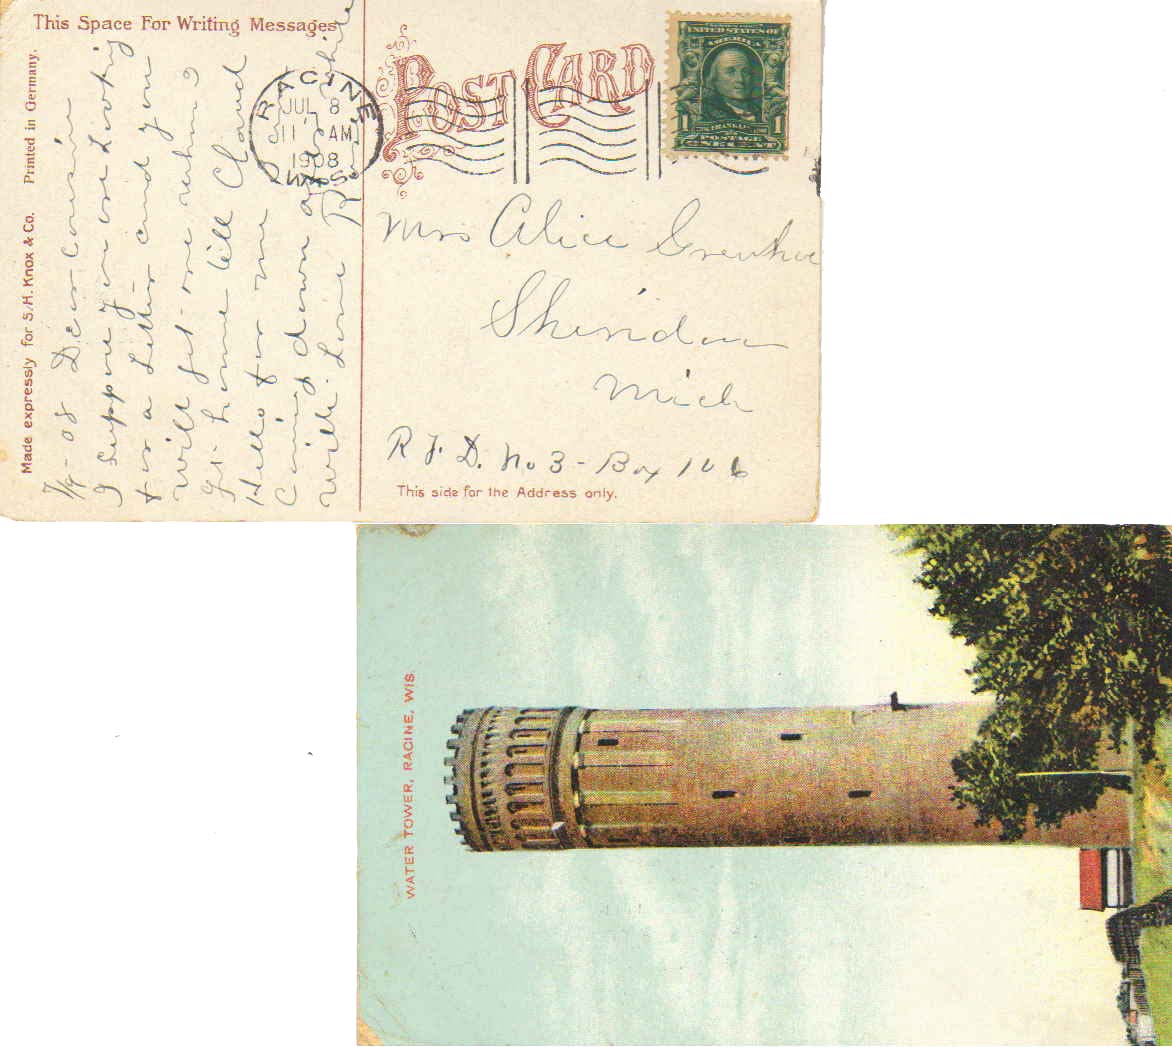 This Space For Writing Messages
Made expressly for S.H. Knox & Co. Printed in Germany.
7/7-08 Dear Cousin
I suppose you are looking
for a letter and you
will get one when I
get home tell Claud
Hello for me
Coming down
with Love
POST CARD
RACINE
JUL 8
11 AM
1908
WIS.
UNITED STATES OF
AMERICA
1
FRANKLIN
1
POSTAGE
ONE CENT
Mrs Alice
Sheridan
Mich
R.F.D. No 3 - Box 106
This side for the Address only.
WATER TOWER, RACINE, WIS.